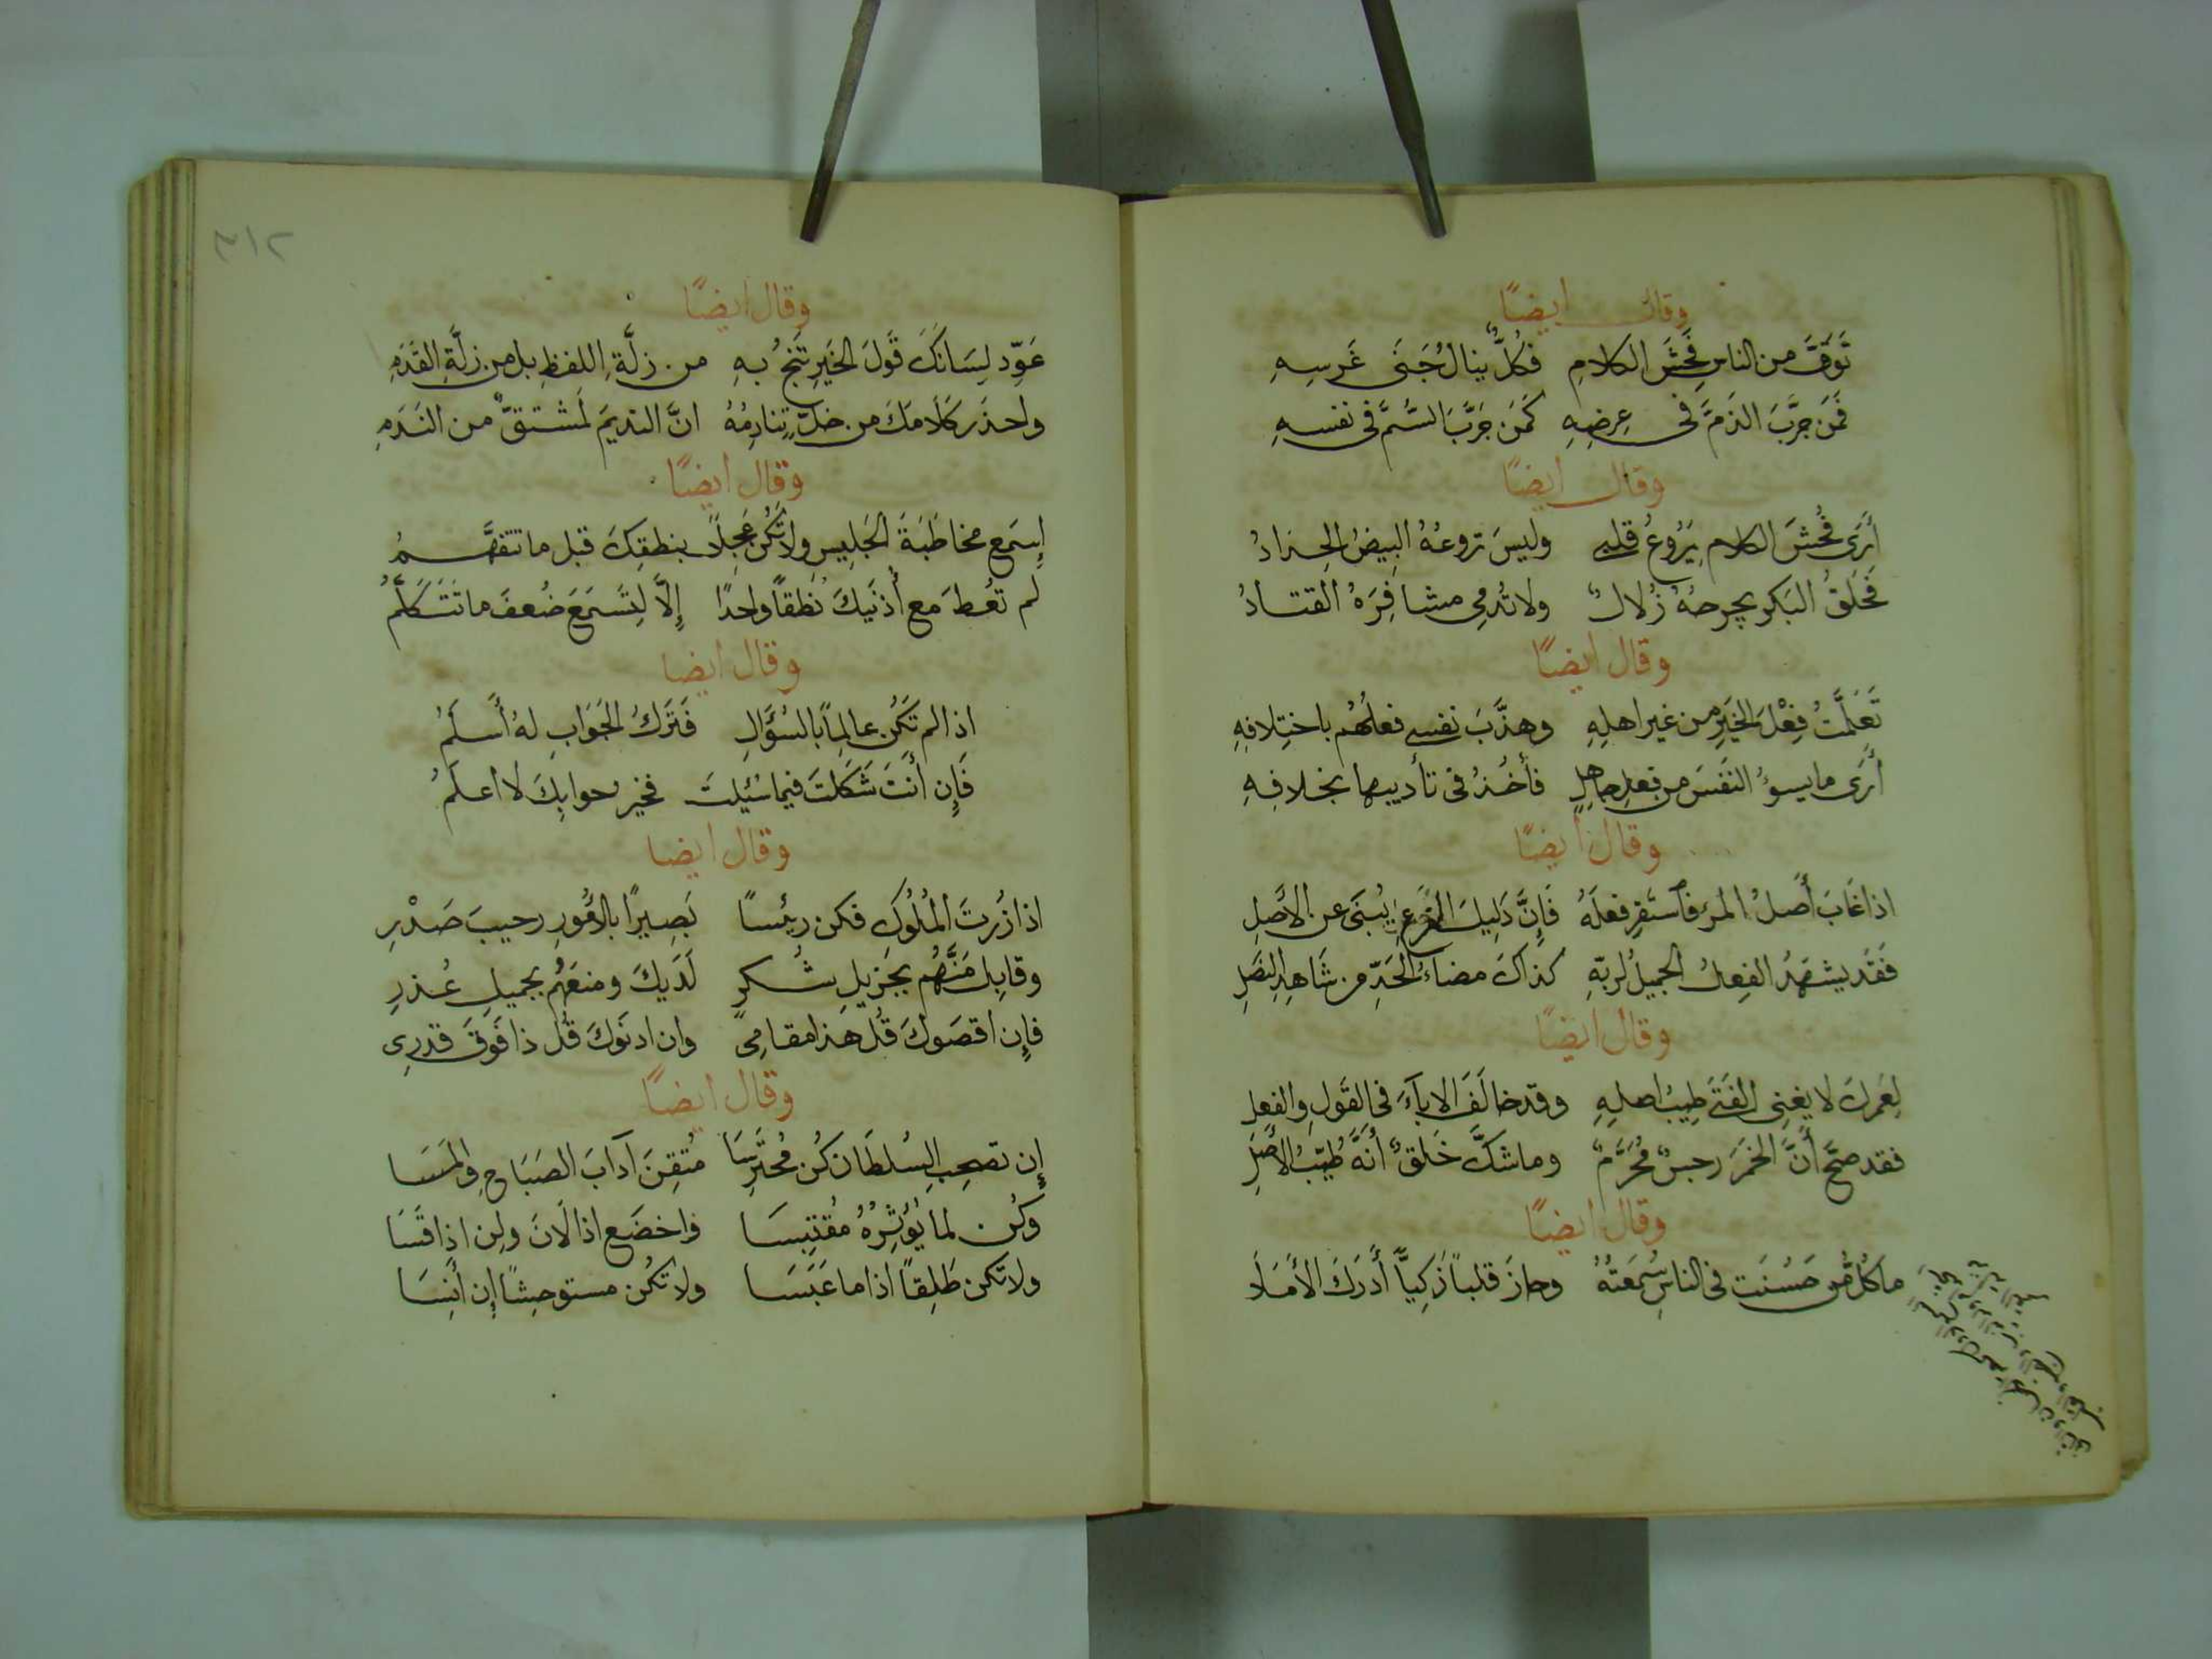 وقال ايضًا
تَوَقَّ من الناسِ فُحشَ الكلامِ فكُلٌّ ينالُ جَنَى غَرسِهِ
فَمَن جرَّبَ الذَمَّ في عِرضِهِ كَمَن جَرَّبَ السُّمَّ في نفسهِ
وقال ايضًا
أَرَى فُحشَ الكلام يَرُوعُ قلبي وليسَ تروعُهُ البِيضُ الحِدادُ
فَحَلقُ البَكرِ يجرحهُ زُلالٌ ولا تُدمِي مشافِرَهُ القتادُ
وقال ايضًا
تَعَلَّمتُ فِعْلَ الخَيرِ من غير اهلِهِ وهذَّبَ نفسي فعلُهُم باختِلافِهِ
أَرَى ما يسوُ النفسَ من فعلِ جاهلٍ فأخُذُ في تأديبها بخلافِهِ
وقال أيضًا
اذا غَابَ أَصلُ المرءِ فاستَقرِ فعلَهُ فَإِنَّ دَلِيلَ الفَرعِ يُنبَى عن الأَصلِ
فَقَد يشهَدُ الفِعلُ الجميلُ لربّهِ كذاكَ مضاءُ الحَدِّ من شَاهِدِ النَصلِ
وقال ايضًا
لِعَمرك لا يغنِى الفَتَى طِيبُ اصلِهِ وقد خالَفَ الاباءَ في القَولِ والفعلِ
فقد صحَّ أَنَّ الخَمَر رجسٌ مُحَرَّمٌ وما شكَّ خَلقٌ أَنَّهُ طَيّبُ الأَصلِ
وقال ايضًا
ما كُلُّ مَن حَسُنَت في الناسِ سُمعَتُهُ وحازَ قلباً ذَكِيًّا أَدرَكَ الأَمَلَا
٣١٢
وقال ايضًا
عَوِّد لِسَانَكَ قَولَ الخَيرِ تَنجُ بهِ من زلَّةِ اللفظِ بل من زلَّةِ القَدَمِ
واحذر كَلَامَكَ من خلٍّ تنادِمُهُ انَّ النديمَ لَمشتقٌّ من النَدَمِ
وقال أيضًا
إِسمَع مخاطَبَةَ الجَلِيسِ ولا تَكُن عَجِلًا بنطقِكَ قبل ما تتفهَّمُ
لم تعُطَ مع أُذنَيكَ نُطقاً واحدًا إِلَّا لِتَسمَعَ ضُعفَ ما تَتَكَلَّمُ
وقال ايضا
اذا لم تَكُن عالِماً بالسُّؤَالِ فَتَركُ الجَوَابِ لهُ أَسلَمُ
فَإِن أَنتَ شَكَلتَ فيما سُئِلتَ فخير جوابِكَ لا اعلَمُ
وقال ايضا
اذا زُرتَ المُلُوكَ فكن رئيسًا بَصِيرًا بالامُورِ رحيبَ صَدْرِ
وقابِل مَنَّهُم بجَزِيلِ شُكرٍ لَدَيكَ ومنعَهُم بجميلِ عُذرِ
فإِن اقصَوكَ قُل هذا مقامِى وان ادنَوكَ قُل ذا فَوقَ قدرِى
وقال ايضًا
إِن تصحبِ السُلطَانَ كُن مُحتَرِسَا مُتقِنَ آدابَ الصَبَاحِ والمَسَا
وكُن لما يُؤثِرُهُ مُقتَبِسَا واخضَع اذا لَانَ ولِن اذا قَسَا
ولا تكن طَلِقاً اذا ما عَبَسَا ولا تكُن مستوحِشًا إِن أَنِسَا